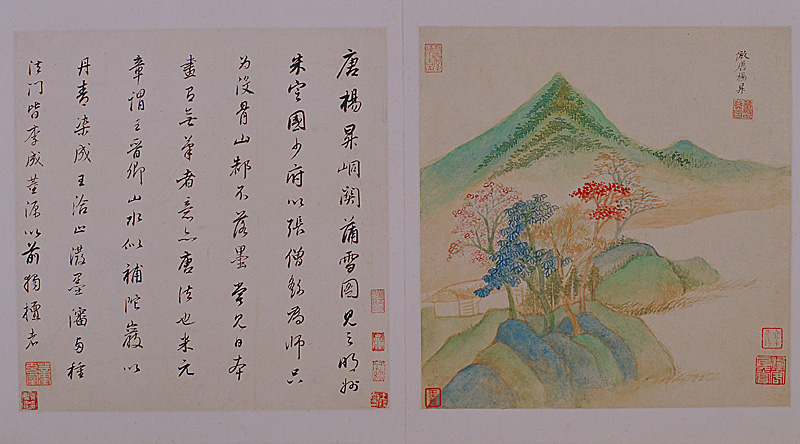 唐楊昇峒關蒲雪圖見之明州
朱定國少府以張僧繇為師只
为沒骨山都不落墨嘗見日本
畫有無筆者意亦唐法也米元
章謂王晉卿山水似補陀巖以
丹青染成王洽止潑墨瀋与種
法門皆李成董源以前獨檀者
倣唐楊昇